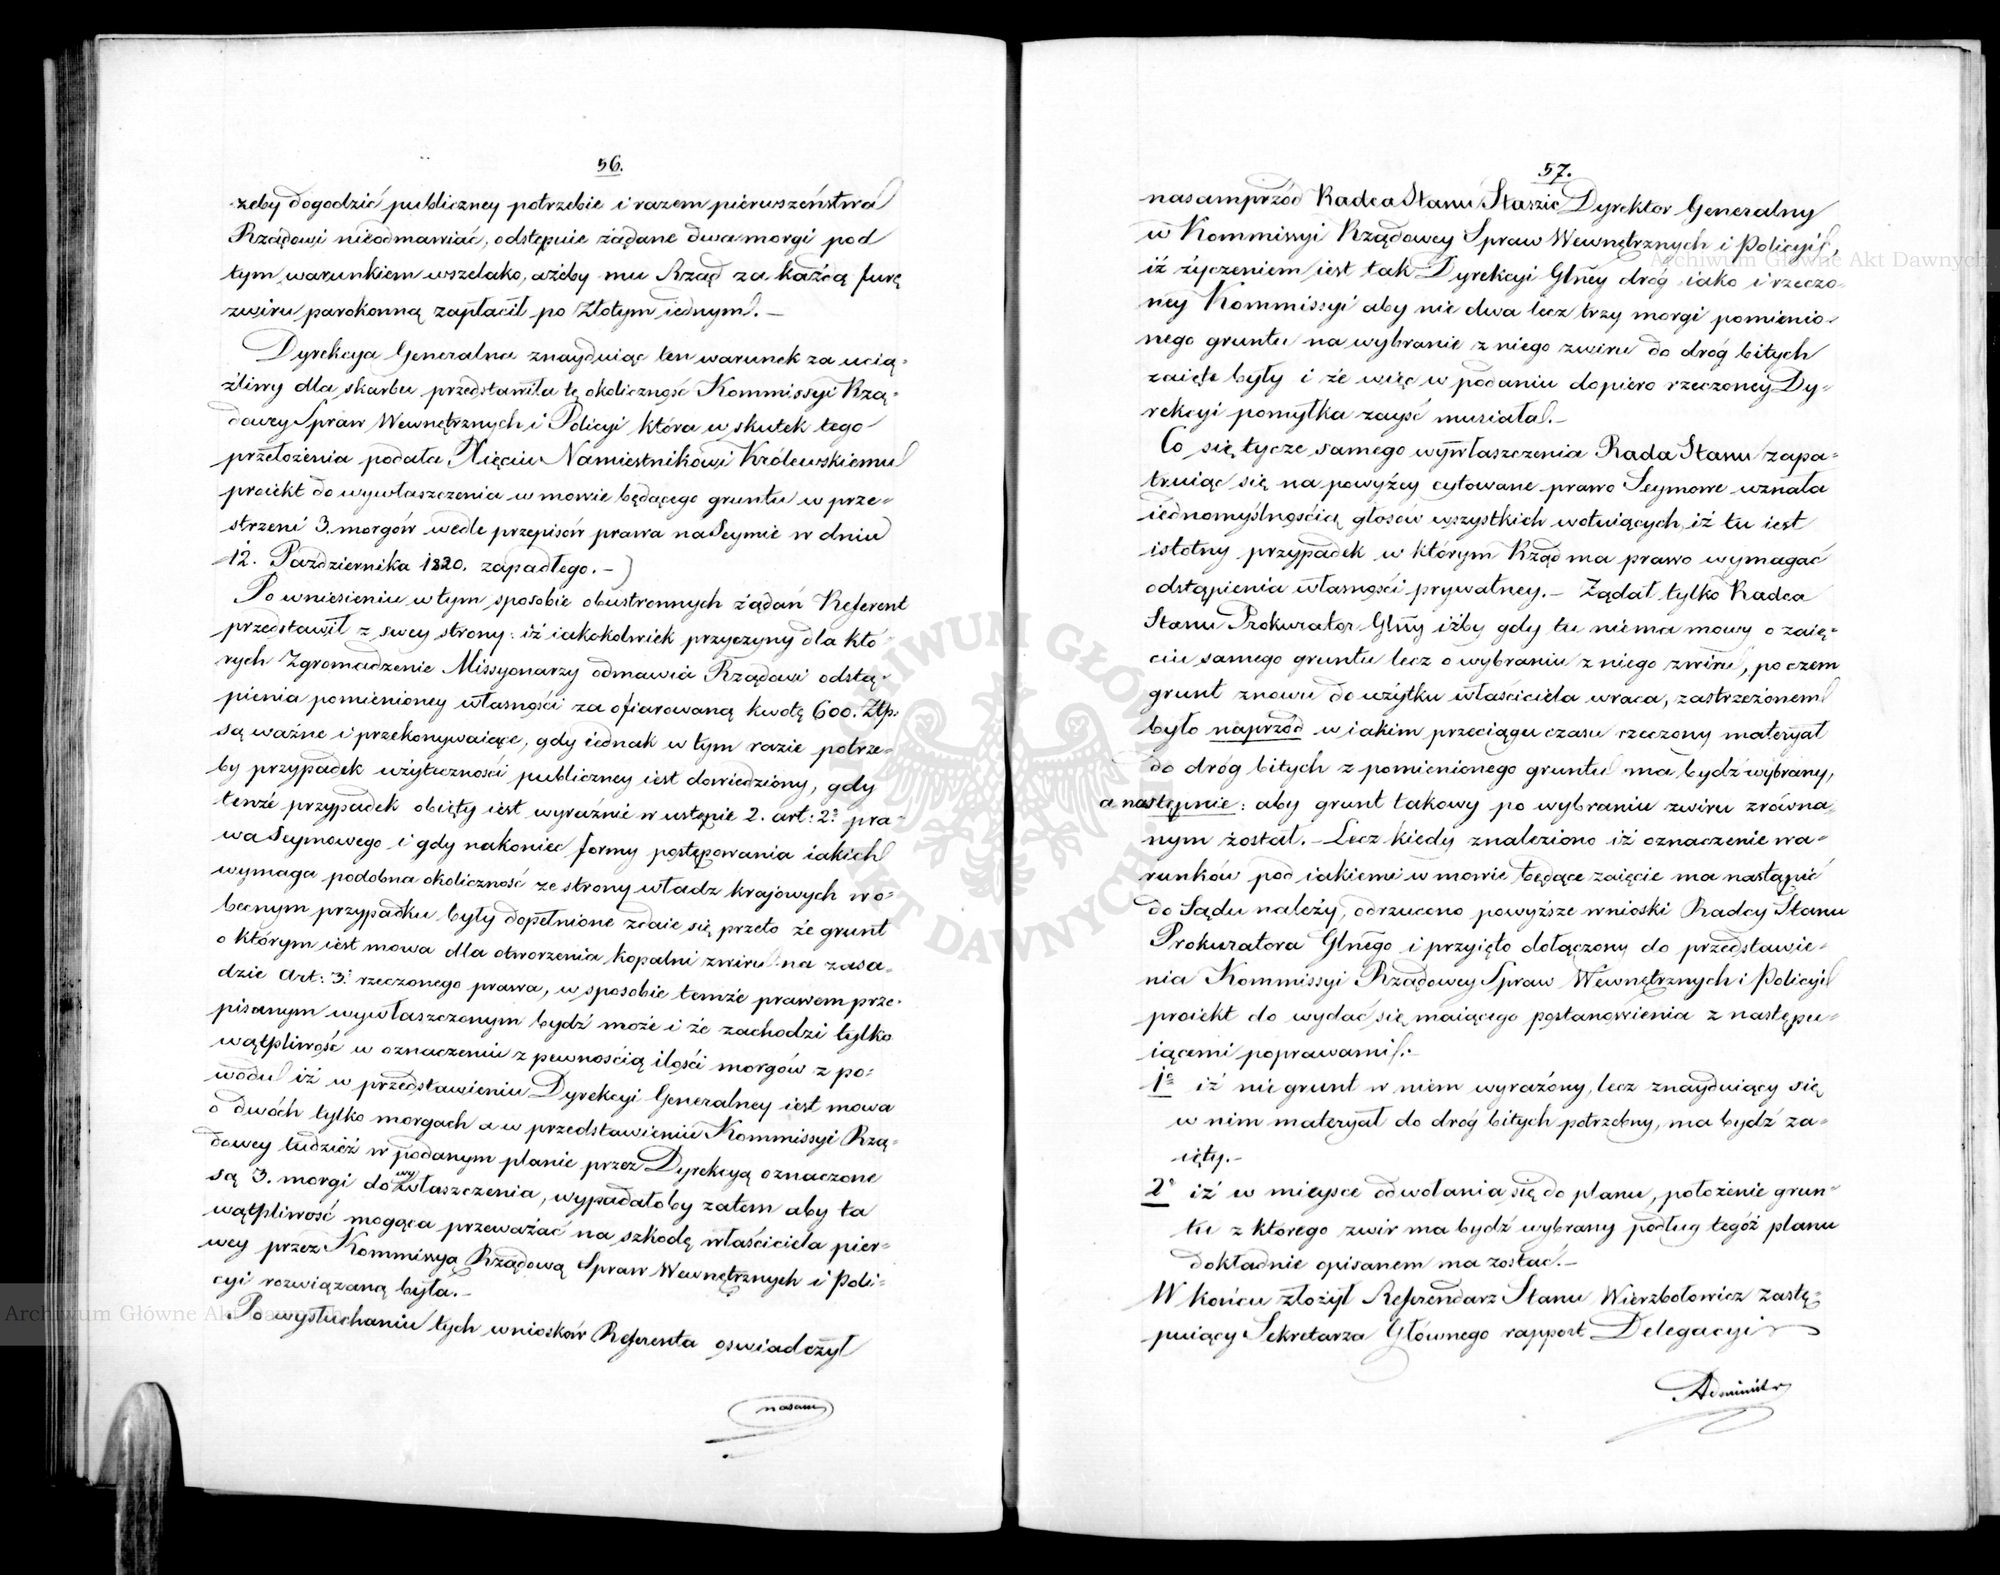 56.
żeby dogodzić publiczney potrzebie i razem pierwszeństwa
Rządowi nieodmawiać, odstępuie żądane dwa morgi pod
tym warunkiem wszelako, ażeby mu Rząd za każdą furę
zwiru parokonną zapłacił po Złotym iednym. –
Dyrekcya Generalna znayduiąc ten warunek za ucią-
żliwy dla skarbu przedstawiła tę okoliczność Kommissyi Rzą-
dowey Spraw Wewnętrznych i Policyi która w skutek tego
przełożenia podała Xięciu Namiestnikowi Królewskiemu
proiekt do wywłaszczenia w mowie będącego gruntu w prze-
strzeni 3. morgów wedle przepisów prawa na Seymie w dniu
12. Października 1820. zapadłego. –
Po wniesieniu w tym sposobie obustronnych żądań Referent
przedstawił z swey strony: iż iakokolwiek przyczyny dla któ-
rych Zgromadzenie Missyonarzy odmawia Rządowi odstą-
pienia pomienioney własności za ofiarowaną kwotę 600. Złp.
są ważne i przekonywaiące, gdy iednak w tym razie potrze-
by przypadek użyteczności publiczney iest dowiedziony, gdy
tenże przypadek obięty iest wyraźnie w ustępie 2. art: 2º pra-
wa Seymowego i gdy nakoniec formy postępowania iakich
wymaga podobna okoliczność ze strony władz krajowych w o-
becnym przypadku były dopełnione zdaie się przeto że grunt
o którym iest mowa dla otworzenia kopalni zwiru na zasa-
dzie Art: 3º rzeczonego prawa, w sposobie temże prawem prze-
pisanym wywłaszczonym bydź może i że zachodzi tylko
wątpliwość w oznaczeniu z pewnością ilości morgów z po-
wodu iż w przedstawieniu Dyrekcyi Generalney iest mowa
o dwóch tylko morgach a w przedstawieniu Kommissyi Rzą-
dowey tudzież w podanym planie przez Dyrekcyą oznaczone
są 3. morgi do wywłaszczenia, wypadałoby zatem aby ta
wątpliwość mogąca przeważać na szkodę właściciela pier-
wey przez Kommissyą Rządową Spraw Wewnętrznych i Poli-
cyi rozwiązaną była. –
Po wysłuchaniu tych wniosków Referenta oswiadczył
nasam
57.
nasamprzód Radca Stanu Staszic Dyrektor Generalny
w Kommissyi Rządowey Spraw Wewnętrznych i Policyi,
iż życzeniem iest tak Dyrekcyi Głney dróg iako i rzeczo-
ney Kommissyi aby nie dwa lecz trzy morgi pomienio-
nego gruntu na wybranie z niego zwiru do dróg bitych
zaięte były i że więc w podaniu dopiero rzeczoney Dy-
rekcyi pomyłka zayść musiała. –
Co się tycze samego wywłaszczenia Rada Stanu zapa-
truiąc się na powyżey cytowane prawo Seymowe uznała
iednomyślnością głosów wszystkich wotuiących, iż tu iest
istotny przypadek w którym Rząd ma prawo wymagać
odstąpienia własności prywatney. – Żądał tylko Radca
Stanu Prokurator Głny iżby gdy tu niema mowy o zaię-
ciu samego gruntu lecz o wybraniu z niego zwiru, po czem
grunt znowu do użytku właściciela wraca, zastrzeżonem
było naprzód w iakim przeciągu czasu rzeczony materyał
do dróg bitych z pomienionego gruntu ma bydź wybrany,
a następnie: aby grunt takowy po wybraniu zwiru zrówna-
nym został. – Lecz kiedy znaleziono iż oznaczenie wa-
runków pod iakiemi w mowie będące zaięcie ma nastąpić
do Sądu należy, odrzucono powyższe wnioski Radcy Stanu
Prokuratora Głnego i przyięto dołączony do przedstawie-
nia Kommissyi Rządowey Spraw Wewnętrznych i Policyi
proiekt do wydać się maiącego postanowienia z następu-
iącemi poprawami:
1º iż nie grunt w niem wyrażony, lecz znayduiący się
w nim materyał do dróg bitych potrzebny, ma bydź za-
ięty. –
2º iż w mieysce odwołania się do planu, położenie grun-
tu z którego zwir ma bydź wybrany podług tegoż planu
dokładnie opisanem ma zostać. –
W końcu złożył Referendarz Stanu Wierzbołowicz zastę-
puiący Sekretarza Głównego rapport Delegacyi
Administr
Archiwum Główne Akt Dawnych
Archiwum Główne Akt Dawnych
ARCHIWUM GŁÓWNE AKT DAWNYCH